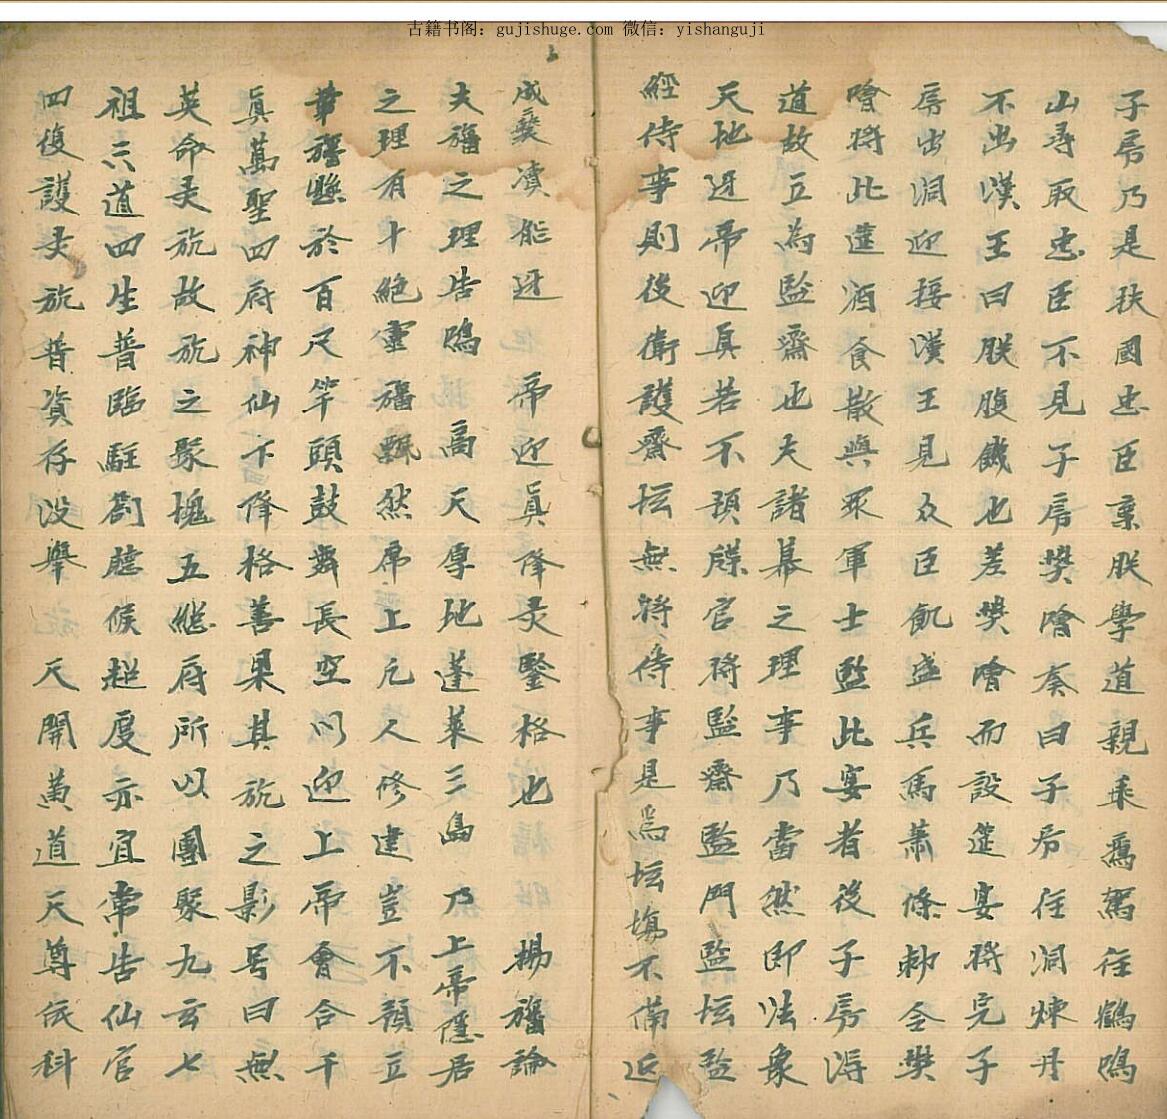 古籍书阁：gujishuge.com 微信：yishanguji
子房乃是扶國忠臣棄朕學道親乘鳳駕往鶴鳴
山尋取忠臣不見子房樊噲奏曰子房住洞煉丹
不出漢王曰朕腹饑也差樊噲而設筵宴將完子
房出洞迎接漢王見众臣飢盛兵馬蕭條勅令樊
噲將此筵酒食散與眾軍士監此宴者後子房得
道故立為監齋也夫諸幕之理事乃當然即法象
天地迓帝迎真若不預牒官將監齋監門監坛監
經侍事則後衛護齋坛無將侍事是爲坛塲不備近
成褻瀆能迓 帝迎真降灵鑒格也 揚旛論
夫旛之理告鳴 高天厚地蓬萊三島乃上帝隱居
之理有十絕靈旛飄然席上凡人修建豈不預立
華旛懸於百尺竿頭鼓舞長空以迎上帝會合千
真萬聖四府神仙下降格善果其旐之影号曰無
英命灵旐故旐之聚塊五総府所以團聚九玄七
祖六道四生普臨駐劄聽候超度亦宜常告仙官
四復護灵旐普資存没舉 天開黄道天尊依科